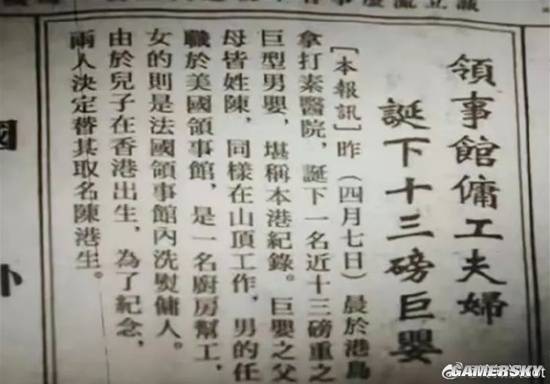 領事館傭工夫婦
誕下十三磅巨嬰
［本報訊］昨（四月七日）晨於港島
拿打素醫院，誕下一名近十三磅重之
巨型男嬰，堪稱本港紀錄。巨嬰之父
母皆姓陳，同樣在山頂工作，男的任
職於美國領事館，是一名廚房幫工，
女的則是法國領事館內洗熨傭人。
由於兒子在香港出生，為了紀念，
兩人決定替其取名陳港生。
國
GAMERSKY